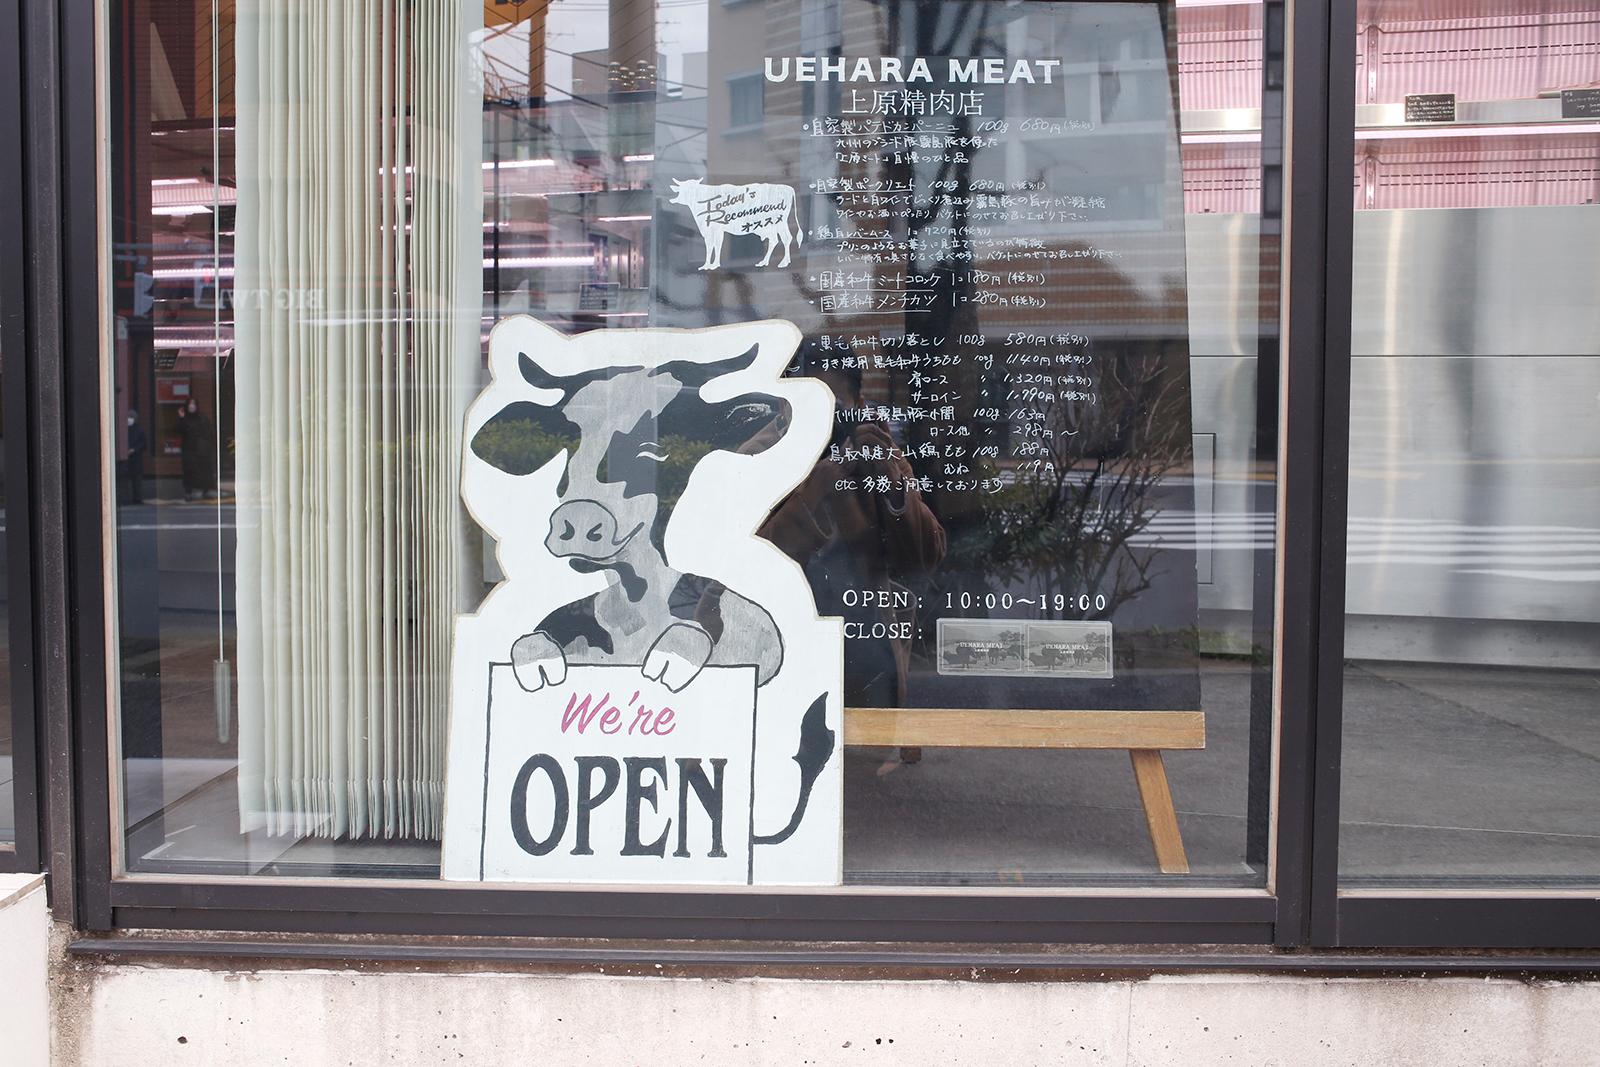 UEHARA MEAT
上原精肉店
・自家製パテドカンパーニュ 100g 680円(税別)
九州のブランド豚霧島豚を使った
「上原ミート」自慢のひと品
Today's
Recommend
オススメ
・自家製ポークリエット 100g 680円(税別)
ラードと白ワインでじっくり煮込み霧島豚の旨みが凝縮
ワインやお酒にぴったり、バケットにのせてお召し上がり下さい。
・鶏白レバームース 1コ 420円(税別)
プリンのようなお菓子に見立てているのが特徴
レバー特有の臭さもなく食べやすい。バケットにのせてお召し上がり下さい。
・国産和牛ミートコロッケ 1コ 180円(税別)
・国産和牛メンチカツ 1コ 280円(税別)
・黒毛和牛切り落とし 100g 580円(税別)
・すき焼用黒毛和牛うちもも 100g 1,140円(税別)
肩ロース 〃 1,320円(税別)
サーロイン 〃 1,990円(税別)
州産霧島豚小間 100g 163円
ロース他 〃 298円 〜
鳥取県産大山鶏もも 100g 188円
むね 〃 119円
etc 多数ご用意しております
OPEN: 10:00〜19:00
CLOSE:
UEHARA MEAT UEHARA MEAT
We're
OPEN
BIG TW